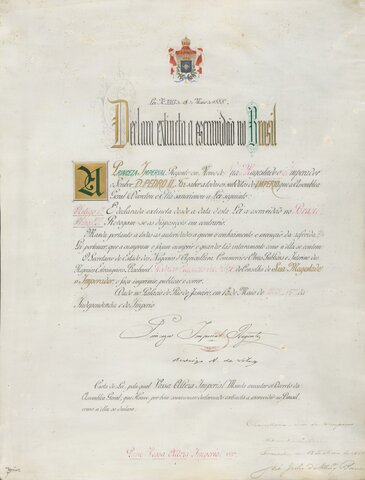 Lei Nº 3353 de 13 de Maio de 1888.
Declara extincta a escravidão no Brasil
A Princeza Imperial Regente em Nome de Sua Magestade o Imperador
o Senhor D. PEDRO II, Faz saber a todos os subditos do IMPERIO que a Assembléa
Geral Decretou e Ella sanccionou a Lei seguinte:
Artigo 1º É declarada extincta desde a data desta Lei a escravidão no Brazil.
Artigo 2º Revogam-se as disposições em contrario.
Manda portanto a todas as autoridades a quem o conhecimento e execução da referida
Lei pertencer, que a cumpram e façam cumprir e guardar tão inteiramente como n'ella se contem.
O Secretario de Estado dos Negocios d'Agricultura, Commercio e Obras Publicas e Interino dos
Negocios Estrangeiros, Bacharel do Conselho de Sua Magestade
o Imperador, o faça imprimir, publicar e correr.
Dado no Palacio do Rio de Janeiro, em 13 de Maio de 1888, 67º da
Independencia e do Imperio.
Princeza Imperial Regente
Rodrigo A. da Silva
Carta de Lei, pela qual Vossa Alteza Imperial Manda executar o Decreto da
Assembléa Geral, que Houve por bem sanccionar declarando extincta a escravidão no Brazil,
como n'ella se declara.
Para Vossa Alteza Imperial ver.